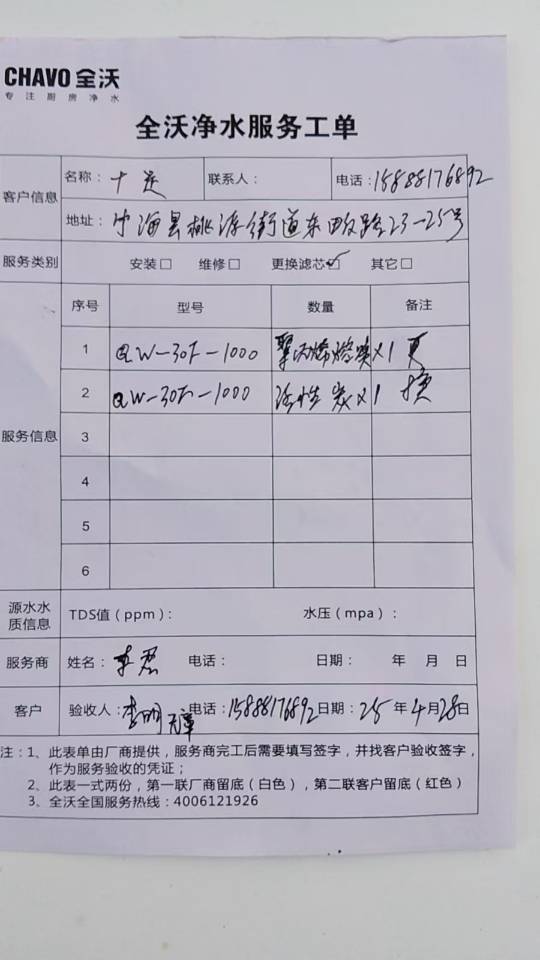 CHAVO 全沃
专注厨房净水
全沃净水服务工单
客户信息
名称：十足 联系人： 电话：15888176892
地址：宁海县桃源街道东 路23-25号
服务类别 安装□ 维修□ 更换滤芯☑ 其它□
服务信息
序号 型号 数量 备注
1 QW-30F-1000 聚丙烯熔喷x1 更
2 QW-30F-1000 活性炭x1 换
3
4
5
6
源水水
质信息
TDS值（ppm）： 水压（mpa）：
服务商 姓名： 电话： 日期： 年 月 日
客户 验收人：李明 电话：15888176892 日期：25年4月28日
注：1、此表单由厂商提供，服务商完工后需要填写签字，并找客户验收签字，
作为服务验收的凭证；
2、此表一式两份，第一联厂商留底（白色），第二联客户留底（红色）
3、全沃全国服务热线：4006121926